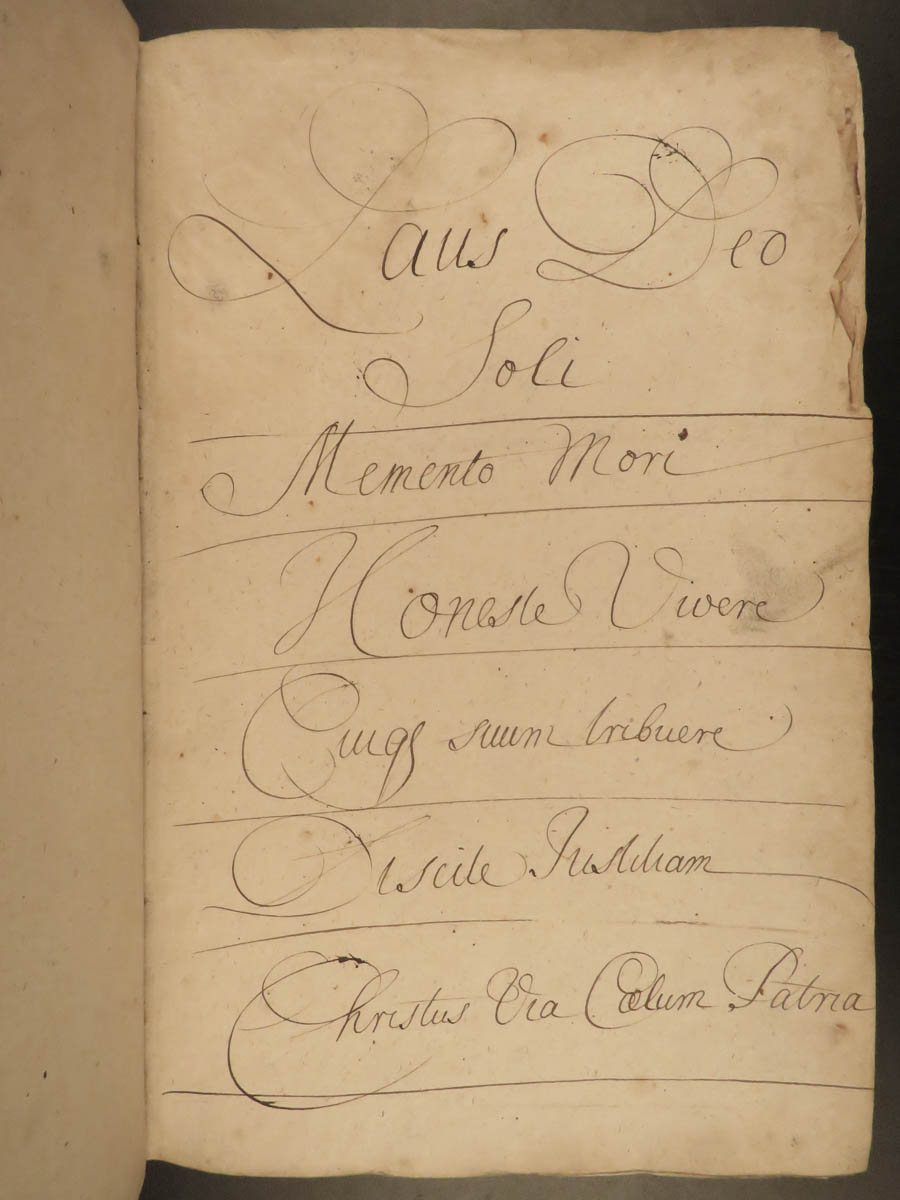 Laus Deo
Soli
Memento Mori
Honeste Vivere
Cuiqꝫ suum tribuere
Discite Iustitiam
Christus Via Cœlum Patria